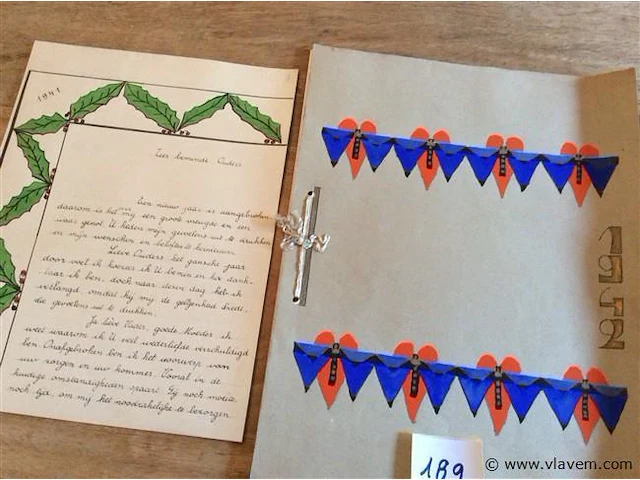 1941
Zeer beminde Ouders
Een nieuw jaar is aangebroken
daarom is het mij een groote vreugde en een
waar genot U heden mijn gevoelens uit te drukken
en mijn wenschen en beloften te hernieuwen.
Lieve Ouders het gansche jaar
door voel ik hoezeer ik U bemin en hoe dank-
baar ik ben, doch naar dezen dag heb ik
verlangd omdat hij mij de gelegenheid biedt,
die gevoelens uit te drukken.
Ja lieve Vader, goede Moeder ik
weet waarom ik U veel wederliefde verschuldigd
ben. Onafgebroken ben ik het voorwerp van
uw zorgen en uw kommer. Vooral in de
huidige omstandigheden spaart Gij noch moeite
noch tijd, om mij het noodzakelijke te bezorgen
1952
189
© www.vlavem.com